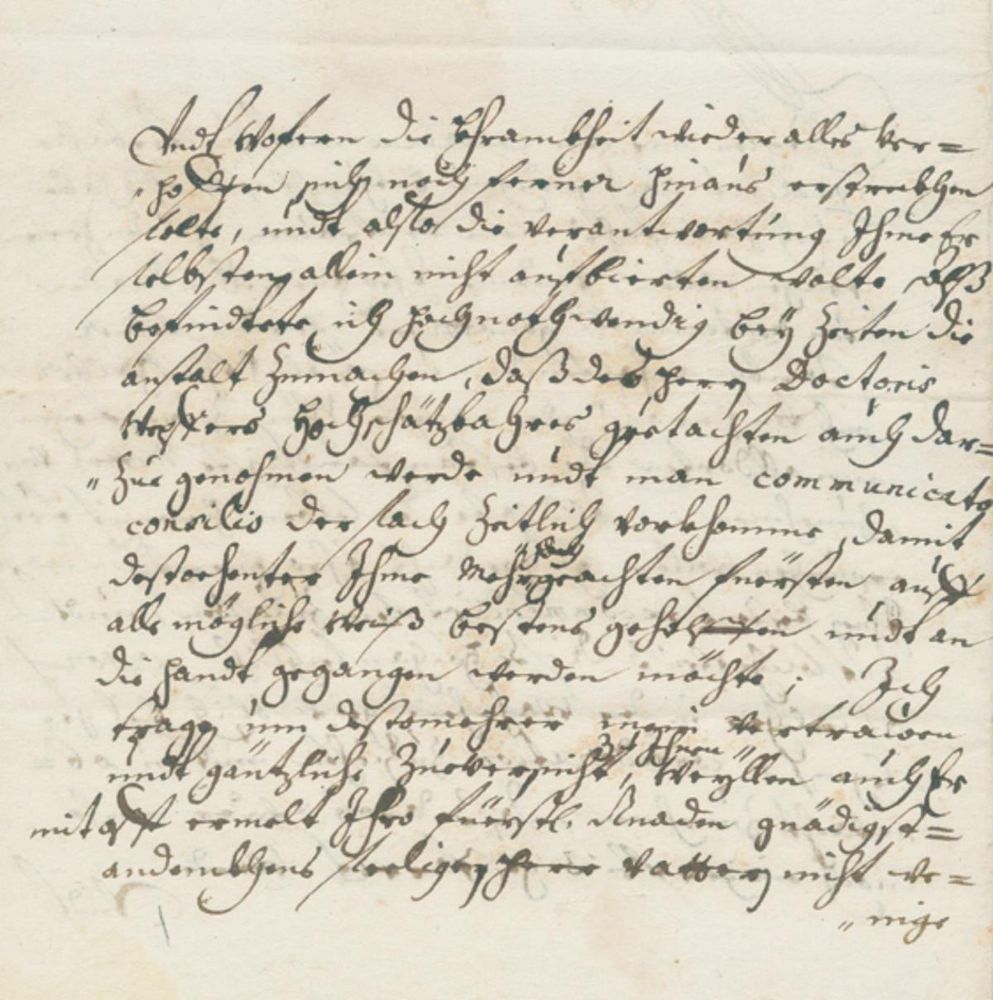 Undt wofern die Khrankheit wieder alles ver=
"hoffen sich noch ferner hinaus erstrekhen
solte, undt also die verantwortung Ihme Er
selbsten allein nicht aufbierten wolte, Alß
befindtete ich hochnothwendig beÿ Zeiten die
anstalt Zumachen, daß des herrn Doctoris
Wepfers Hochschätzbahres guetachten auch dar=
"Zue genohmen werde undt man communicato
consilio der sach Zeitlich vorkhomme, damit
destoehenter Ihme Mehr hochgeachten fuersten auff
alle mögliche Weiß bestens geholffen undt an
die handt gegangen werden möchte; Ich
trage umb destomehrer mein vertrauen
undt gäntzliche Zueversicht, Zu Ihnen Weyllen auch Er
mit offt ermelt Ihro fuerstl. Gnaden gnädigst=
andenkhens seeligen herr vattern nicht we=
"nige